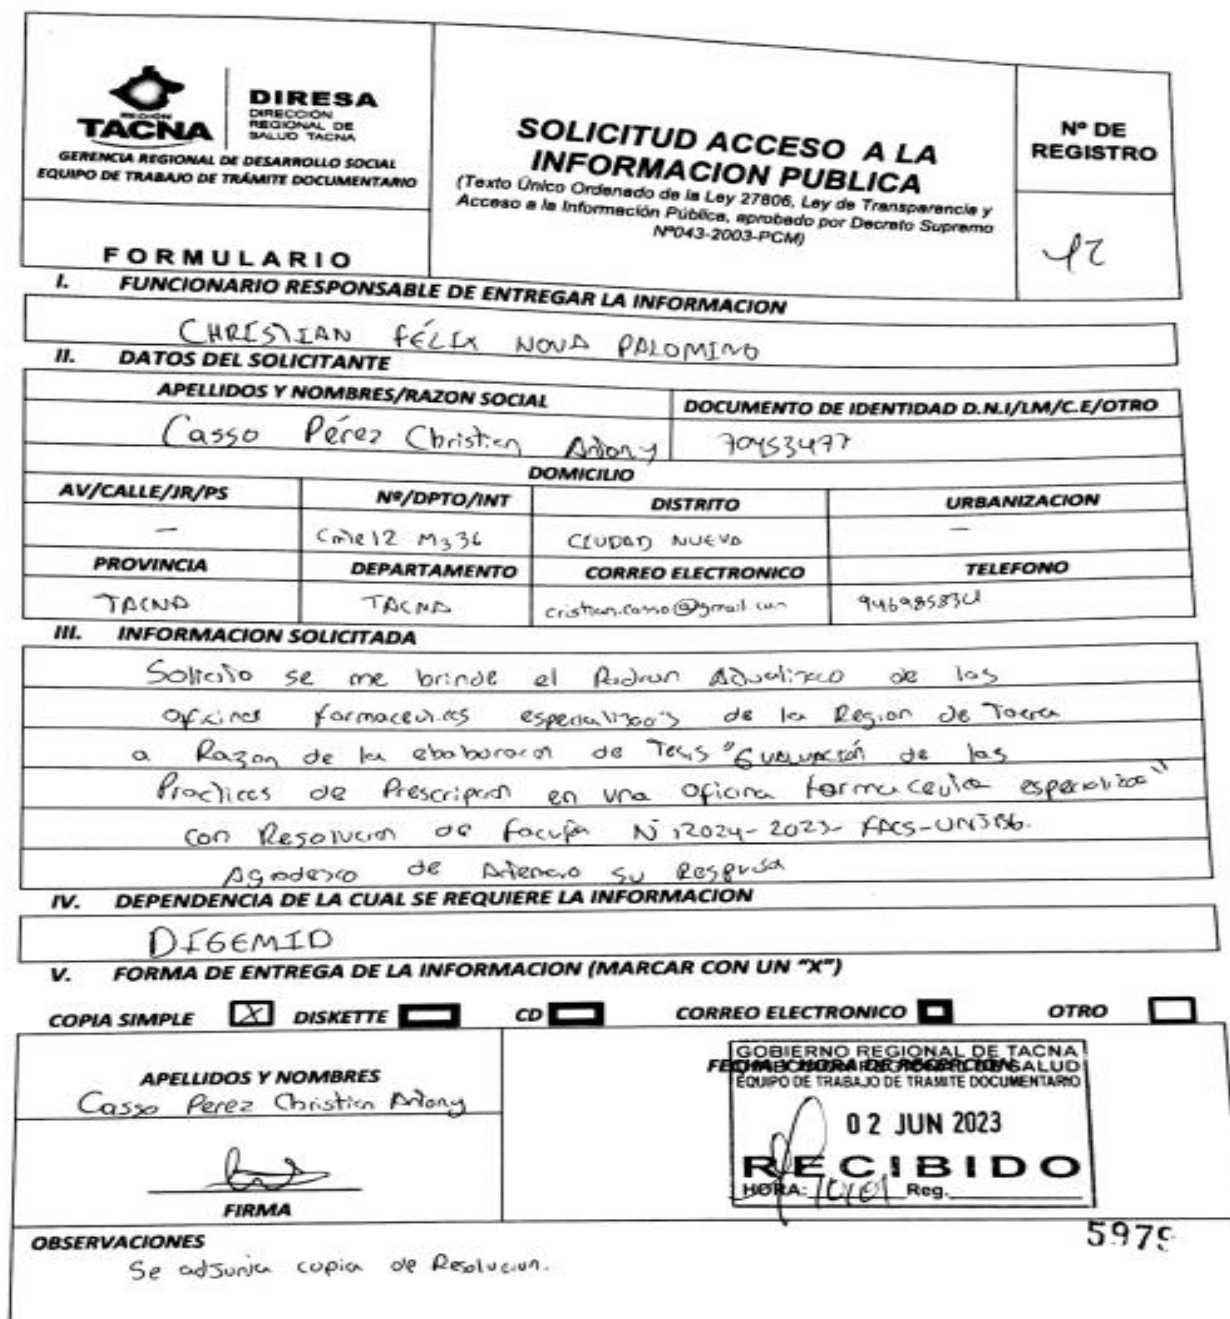 REGIÓN
TACNA
DIRESA
DIRECCIÓN
REGIONAL DE
SALUD TACNA
GERENCIA REGIONAL DE DESARROLLO SOCIAL
EQUIPO DE TRABAJO DE TRÁMITE DOCUMENTARIO
FORMULARIO
SOLICITUD ACCESO A LA
INFORMACION PUBLICA
(Texto Único Ordenado de la Ley 27806, Ley de Transparencia y
Acceso a la Información Pública, aprobado por Decreto Supremo
Nº043-2003-PCM)
Nº DE
REGISTRO
I. FUNCIONARIO RESPONSABLE DE ENTREGAR LA INFORMACION
CHRISTIAN FÉLIX NOVA PALOMINO
II. DATOS DEL SOLICITANTE
APELLIDOS Y NOMBRES/RAZON SOCIAL
DOCUMENTO DE IDENTIDAD D.N.I/LM/C.E/OTRO
Casso Pérez Christian Antony
70453477
DOMICILIO
AV/CALLE/JR/PS
Nº/DPTO/INT
DISTRITO
URBANIZACION
—
12 Mz36
CIUDAD NUEVA
—
PROVINCIA
DEPARTAMENTO
CORREO ELECTRONICO
TELEFONO
TACNA
TACNA
cristian.casso@gmail.com
III. INFORMACION SOLICITADA
Solicito se me brinde el Padron Actualizado de las
oficinas farmaceuticas especializadas de la Region de Tacna
a Razon de la elaboracion de Tesis "Evaluación de las
Practicas de Prescripcion en una oficina farmaceutica especializada"
con Resolucion de Facultad
Agradezco de Antemano su Respuesta
IV. DEPENDENCIA DE LA CUAL SE REQUIERE LA INFORMACION
DIGEMID
V. FORMA DE ENTREGA DE LA INFORMACION (MARCAR CON UN "X")
COPIA SIMPLE X DISKETTE CD CORREO ELECTRONICO OTRO
APELLIDOS Y NOMBRES
Casso Perez Christian Antony
FIRMA
FECHA Y HORA DE RECEPCION
GOBIERNO REGIONAL DE TACNA
EQUIPO DE TRABAJO DE TRAMITE DOCUMENTARIO
02 JUN 2023
RECIBIDO
HORA: Reg.
OBSERVACIONES
Se adjunta copia de Resolucion.